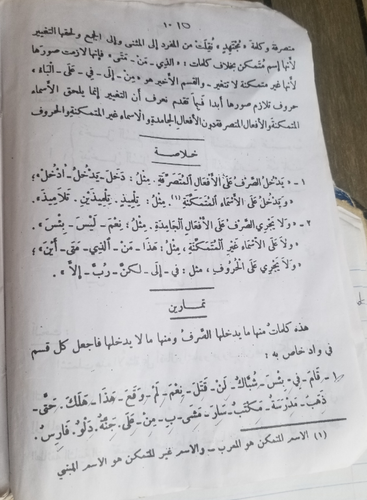 - ١٥ -
متصرفة وكلمة « مجتهد » نُقِلَتْ من المفرد إلى المثنى وإلى الجمع ولحقها التغيير
لأنها إسم متمكن بخلاف كلمات : « الذي - مَنْ - مَتَى » فإنها لازمت صورَها
لأنها غير متمكنة لا تتغير - والقسم الأخير هو « مِنْ - إِلَى - فِي - عَلَى - الْبَاءُ »
حروف تلازم صورها أبدا فيما تقدم نعرف أن التغيير إنما يلحق الأسماء
المتمكنة والأفعال المتصرفة دون الأفعال الجامدة والاسماء غير المتمكنة والحروف
خلاصة
١ - « يَدْخُلُ الصَّرْفُ عَلَى الأَفْعَالِ الْمُتَصَرِّفَةِ . مِثْلُ : دَخَلَ - يَدْخُلُ - اُدْخُلْ » ؛
« وَيَدْخُلُ عَلَى الأَسْمَاءِ الْمُتَمَكِّنَةِ (١) مِثْلُ : تِلْمِيذٌ - تِلْمِيذَيْنِ - تَلاَمِيذَ » .
٢ - « وَلاَ يَجْرِي الصَّرْفُ عَلَى الأَفْعَالِ الْجَامِدَةِ . مِثْلُ : نِعْمَ - لَيْسَ - بِئْسَ » .
« وَلاَ عَلَى الأَسْمَاءِ غَيْرِ الْمُتَمَكِّنَةِ ، مِثْلُ : هَذَا - مَنْ - الَّذِي - مَتَى - أَيْنَ » ؛
« وَلاَ يَجْرِي عَلَى الْحُرُوفِ ، مثل : فِي - إِلَى - لَكِنَّ - رُبَّ - إِلاَّ » .
تمارين
هذه كلماتٌ منها ما يدخلها الصَّرْفُ ومنها ما لا يدخلها فاجعل كل قسم
في واد خاص به :
١ - قَامَ - فِي - بِئْسَ - شُبَّاكٌ - لَنْ - قَتَلَ - نِعْمَ - لَمْ - وَقَعَ - هَذَا - هَلَكَ . حَتَّى -
ذَهَبَ . مَدْرَسَةٌ - مَكْتَبٌ - سَارَ - مَشَى - بِ - مِنْ - عَلَى - جَنَّةٌ . دَلْوٌ . فَارِسٌ .
(١) الاسم المتمكن هو المعرب - والاسم غير المتمكن هو الاسم المبني